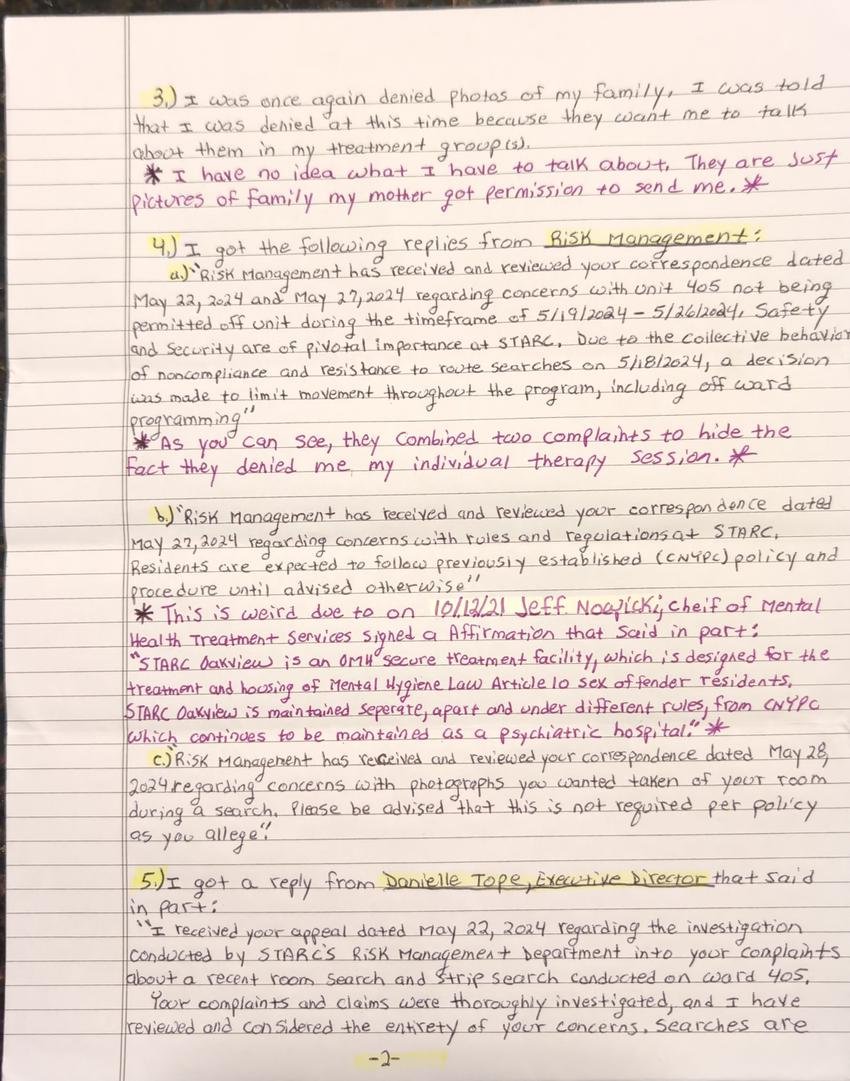 3.) I was once again denied photos of my family. I was told
that I was denied at this time because they want me to talk
about them in my treatment group(s).
* I have no idea what I have to talk about. They are just
pictures of family my mother got permission to send me. *
4.) I got the following replies from Risk Management:
a.) "Risk Management has received and reviewed your correspondence dated
May 22, 2024 and May 27, 2024 regarding concerns with unit 405 not being
permitted off unit during the timeframe of 5/19/2024 - 5/26/2024. Safety
and Security are of pivotal importance at STARC. Due to the collective behavior
of noncompliance and resistance to route searches on 5/18/2024, a decision
was made to limit movement throughout the program, including off ward
programming"
* As you can see, they combined two complaints to hide the
fact they denied me my individual therapy session. *
b.) "Risk Management has received and reviewed your correspondence dated
May 27, 2024 regarding concerns with rules and regulations at STARC.
Residents are expected to follow previously established (CNYPC) policy and
procedure until advised otherwise"
* This is weird due to on 10/12/21 Jeff cheif of Mental
Health Treatment Services signed a Affirmation that said in part:
"STARC Oakview is an OMH secure treatment facility, which is designed for the
treatment and housing of Mental Hygiene Law Article 10 sex offender residents.
STARC Oakview is maintained seperate, apart and under different rules, from CNYPC
which continues to be maintained as a psychiatric hospital." *
c.) "Risk Management has received and reviewed your correspondence dated May 28,
2024 regarding concerns with photographs you wanted taken of your room
during a search. Please be advised that this is not required per policy
as you allege".
5.) I got a reply from Danielle Tope, Executive Director that said
in part:
"I received your appeal dated May 22, 2024 regarding the investigation
conducted by STARC'S Risk Management Department into your complaints
about a recent room search and strip search conducted on ward 405.
Your complaints and claims were thoroughly investigated, and I have
reviewed and considered the entirety of your concerns. Searches are
-2-